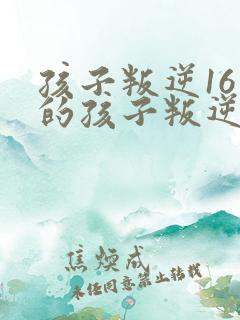 孩子叛逆16
的孩子叛逆
焦煥成
未经同意禁止转载